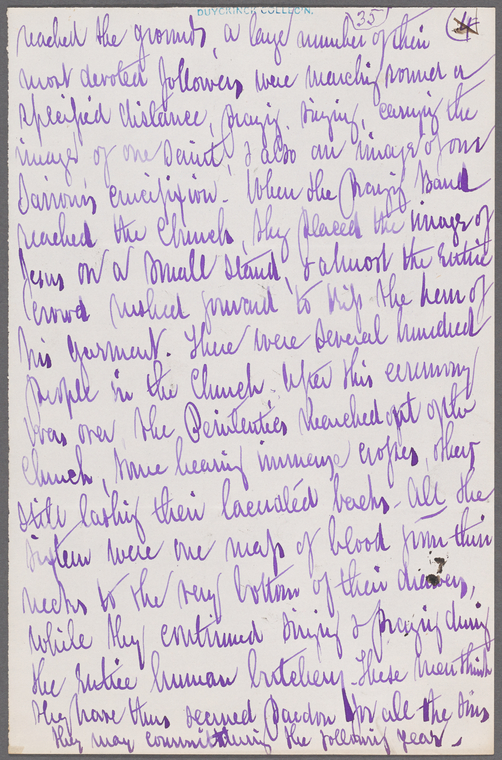 DUYCKINCK COLLECN.
35
4
reached the grounds, a large number of their
most devoted followers were marching round a
specified distance, praying, singing, carrying the
image of one Saint, & also an image of our
Saviour's crucifixion. When the praying band
reached the Church, they placed the image of
Jesus on a small stand, & almost the entire
crowd rushed forward to kiss the hem of
his garment. There were several hundred
people in the Church. After this ceremony
was over the Penitentes marched out of the
Church, some bearing immense crosses, others
still lashing their lacerated backs. All the
sixteen were one mass of blood from their
necks to the very bottom of their drawers,
while they continued singing & praying during
the entire human butchery. These men think
they have thus secured pardon for all the sins
they may commit during the following year.